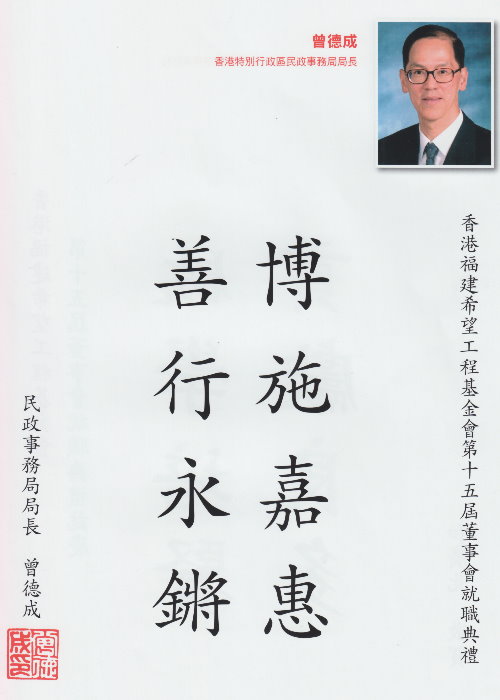 曾德成
香港特別行政區民政事務局局長
香港福建希望工程基金會第十五屆董事會就職典禮
博施嘉惠
善行永鏘
民政事務局局長 曾德成
曾德
成印